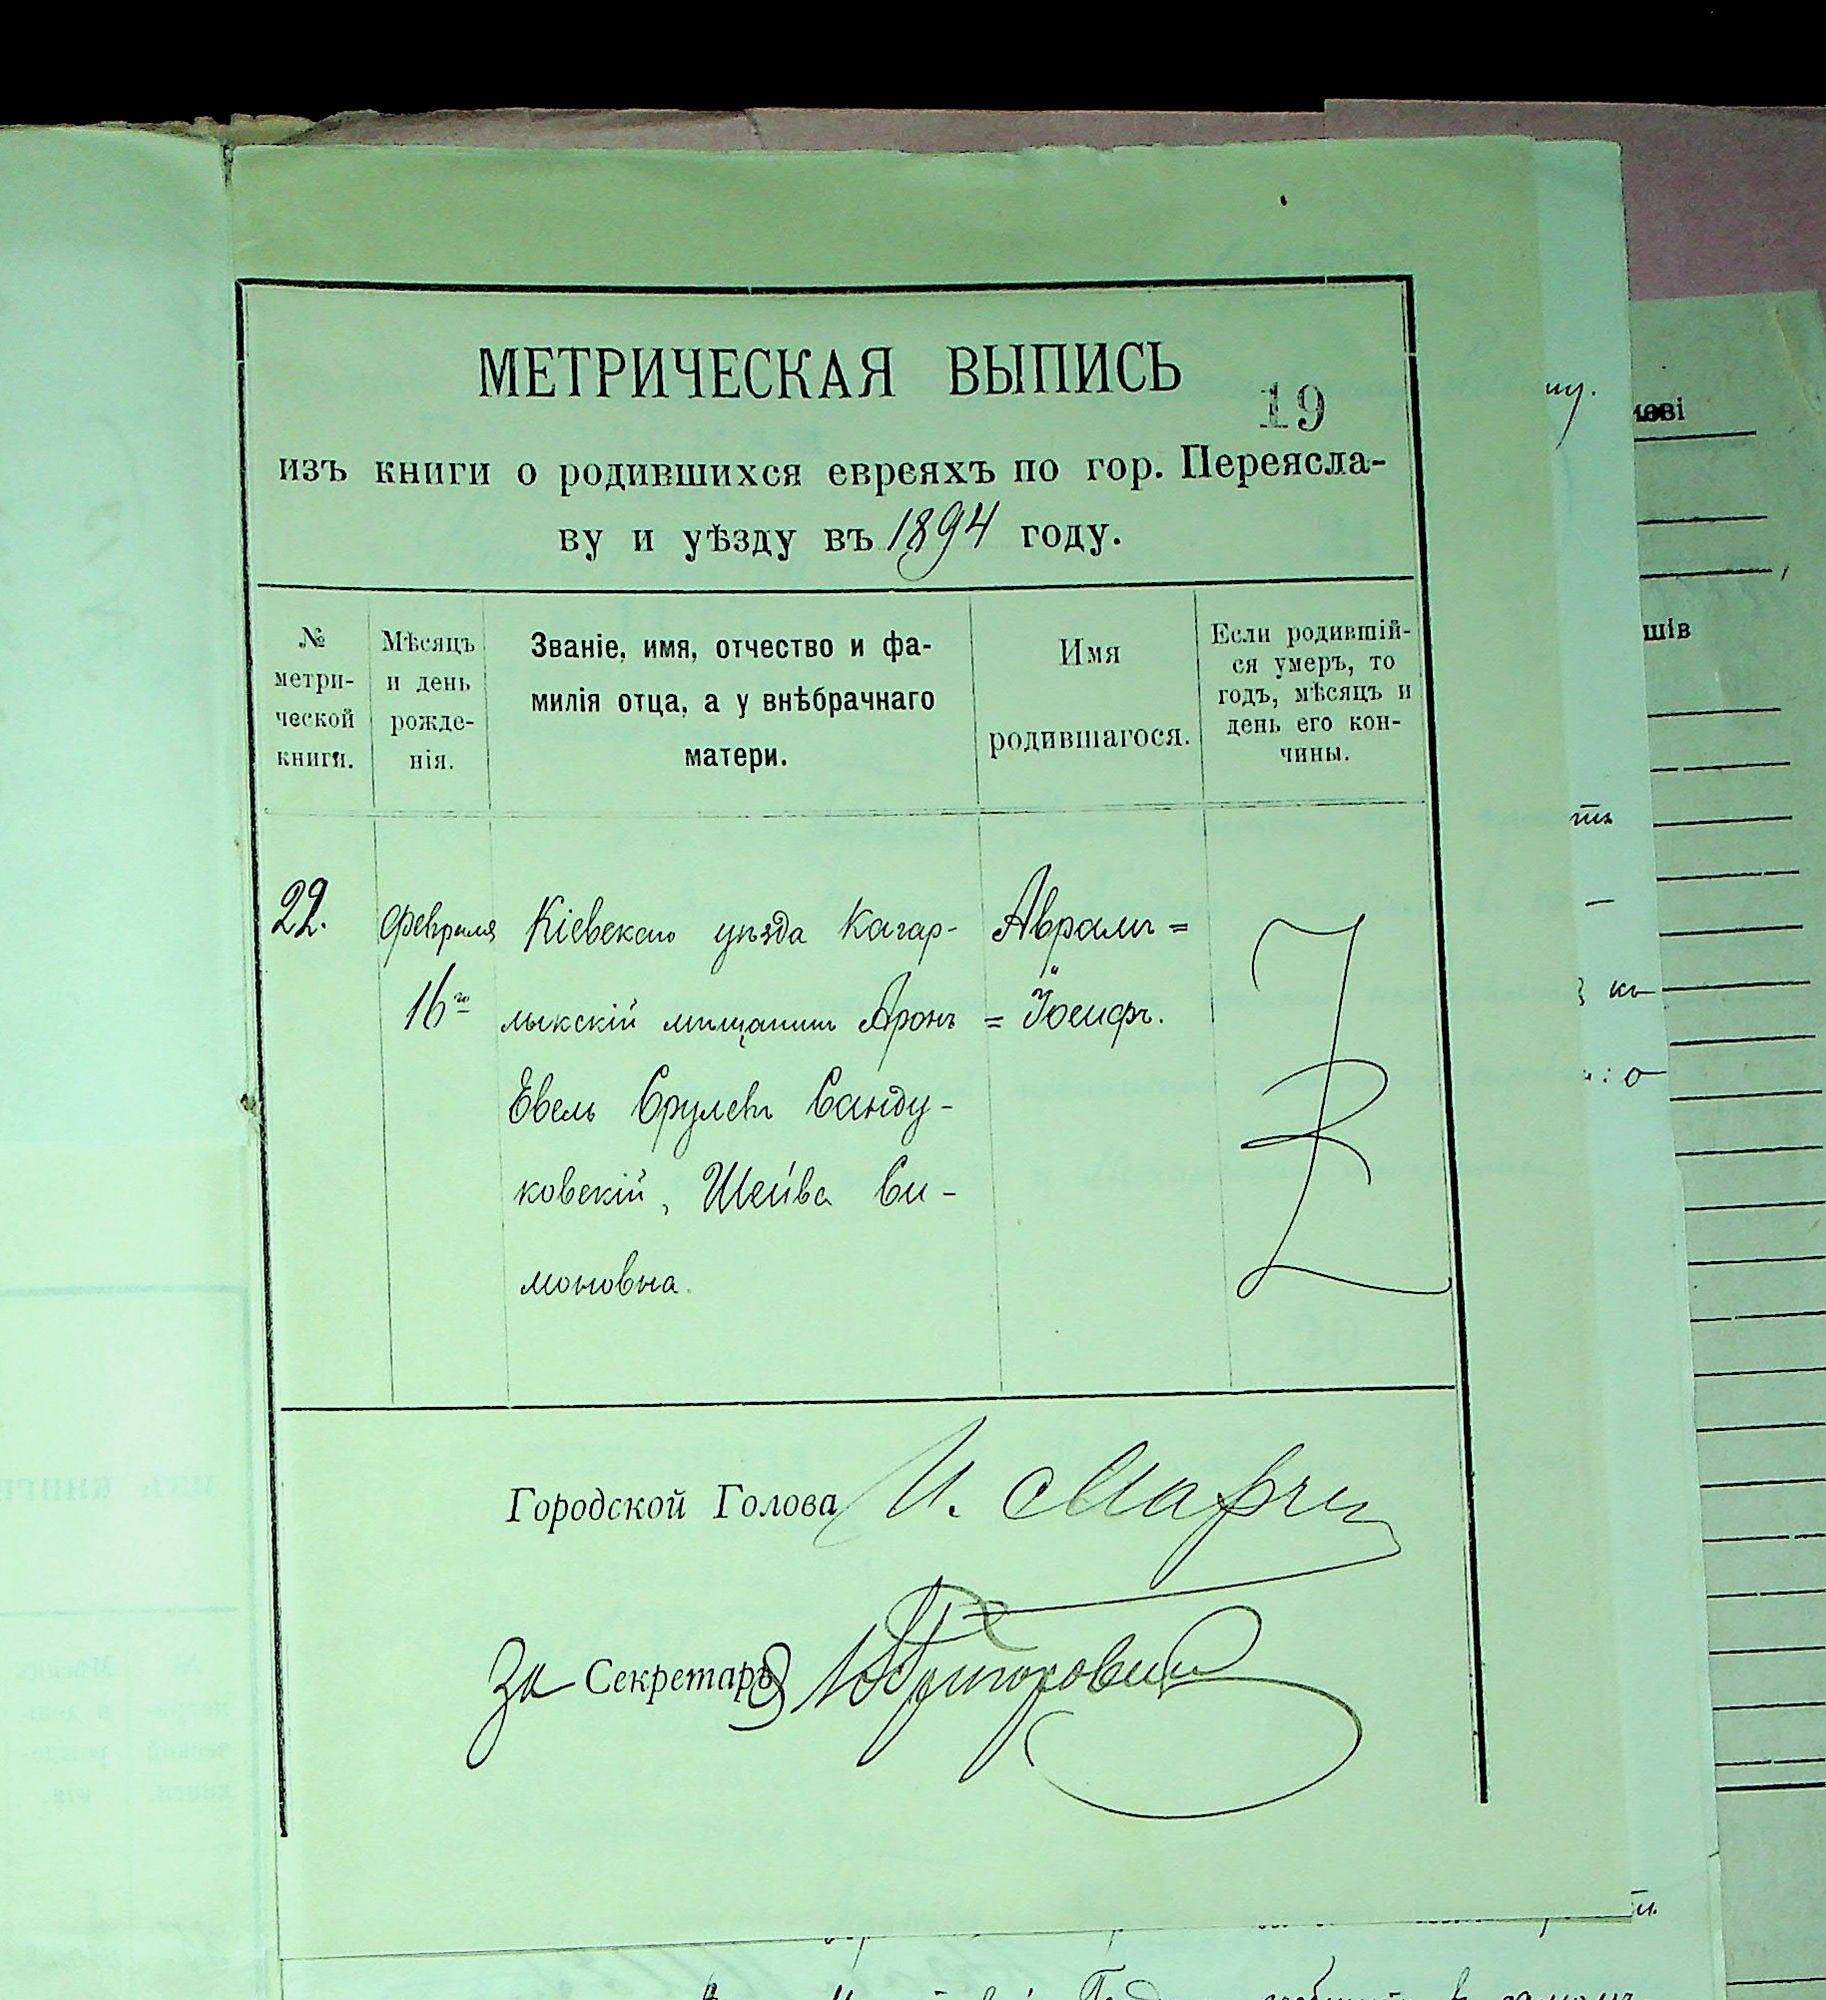 МЕТРИЧЕСКАЯ ВЫПИСЬ
19
изъ книги о родившихся евреяхъ по гор. Переясла-
ву и уѣзду въ 1894 году.
№ метри-ческой книги.
Мѣсяцъ и день рожде-нія.
Званіе, имя, отчество и фа-
милія отца, а у внѣбрачнаго
матери.
Имя
родившагося.
Если родившій-
ся умеръ, то
годъ, мѣсяцъ и
день его кон-
чины.
22.
Февраля
16го
Кіевскаго уѣзда Кагар-
лыкскій мѣщанинъ Аронъ =
Евель Срулевъ Санду-
ковскій, Шейва Си-
моновна.
Аврамъ =
Іосифъ.
Городской Голова И.
За Секретаря